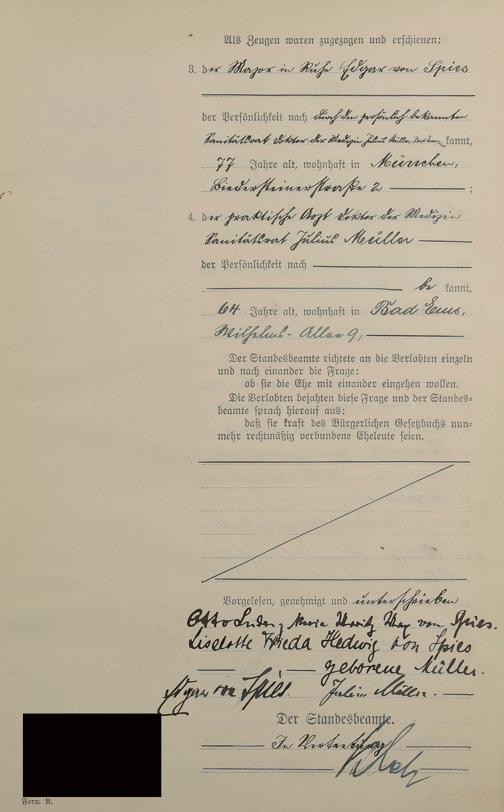 Als Zeugen waren zugezogen und erschienen:
3. der Major in Ruhe Edgar von Spies
der Persönlichkeit nach durch den persönlich bekannten
Sanitätsrat Doktor der Medizin Julius Müller, Bad Ems, kannt,
77 Jahre alt, wohnhaft in München,
Biedersteinerstraße 2 ;
4. der praktische Arzt Doktor der Medizin
Sanitätsrat Julius Müller
der Persönlichkeit nach
be kannt,
64 Jahre alt, wohnhaft in Bad Ems,
Wilhelms-Allee 9,
Der Standesbeamte richtete an die Verlobten einzeln
und nach einander die Frage:
ob sie die Ehe mit einander eingehen wollen.
Die Verlobten bejahten diese Frage und der Standes-
beamte sprach hierauf aus:
daß sie kraft des Bürgerlichen Gesetzbuchs nun-
mehr rechtmäßig verbundene Eheleute seien.
Vorgelesen, genehmigt und unterschrieben
Otto Maria Moritz von Spies.
Liselotte Frieda Hedwig von Spies
geborene Müller.
Edgar von Spies Julius Müller.
Der Standesbeamte.
In Vertretung
Form. B.